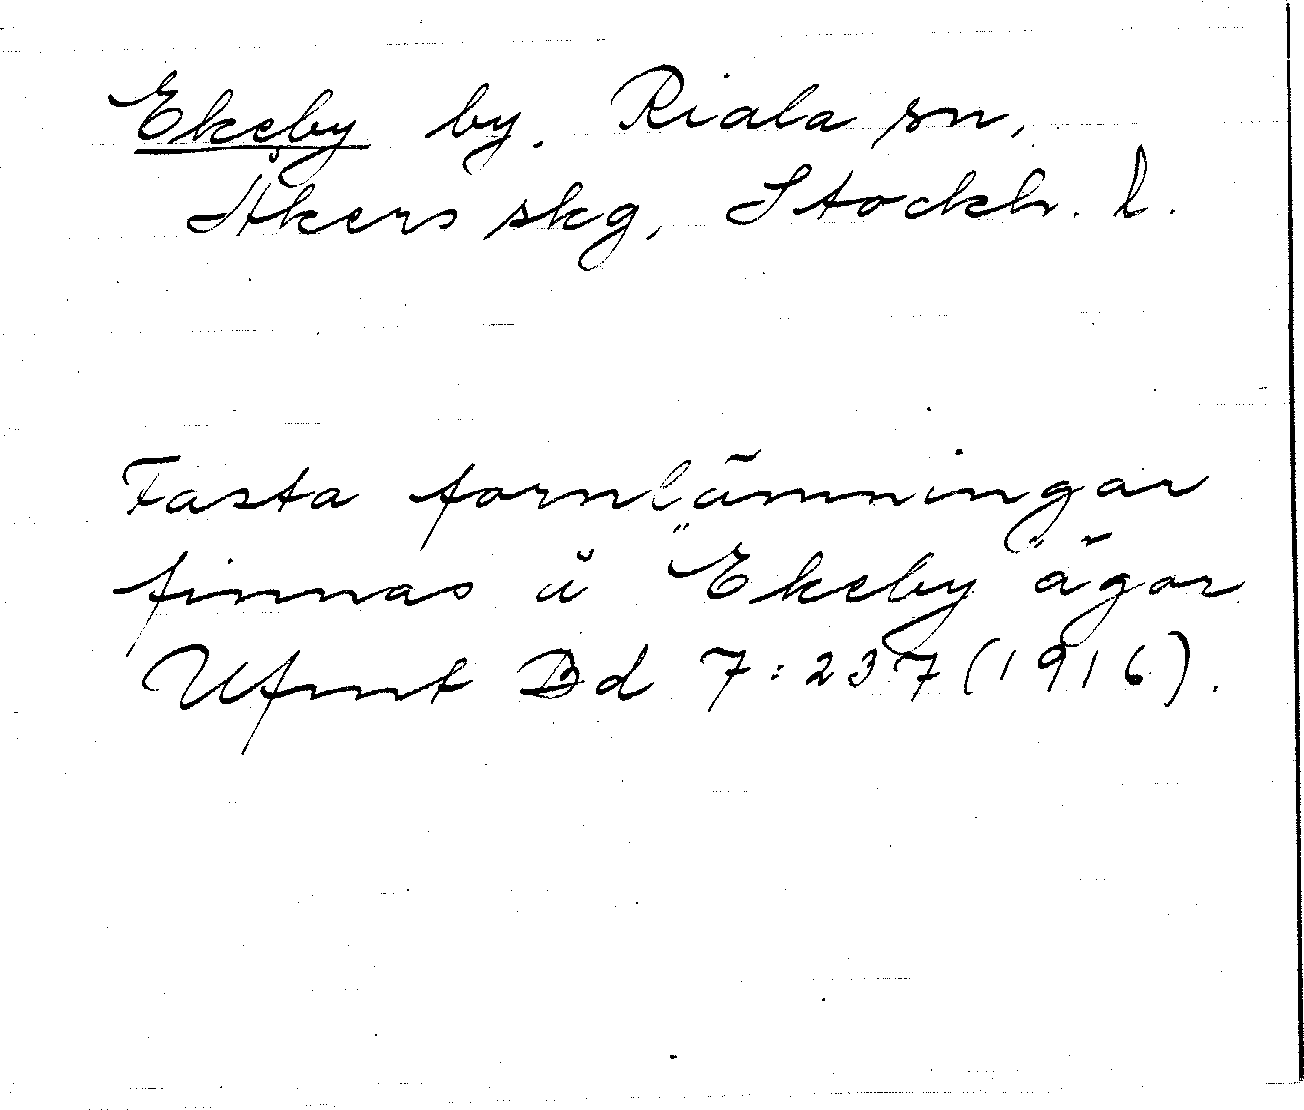 Ekeby by. Riala sn,
Åkers skg, Stockh. l.
Fasta fornlämningar
finnas å "Ekeby" ägor
Ufmt Bd 7:237 (1916).